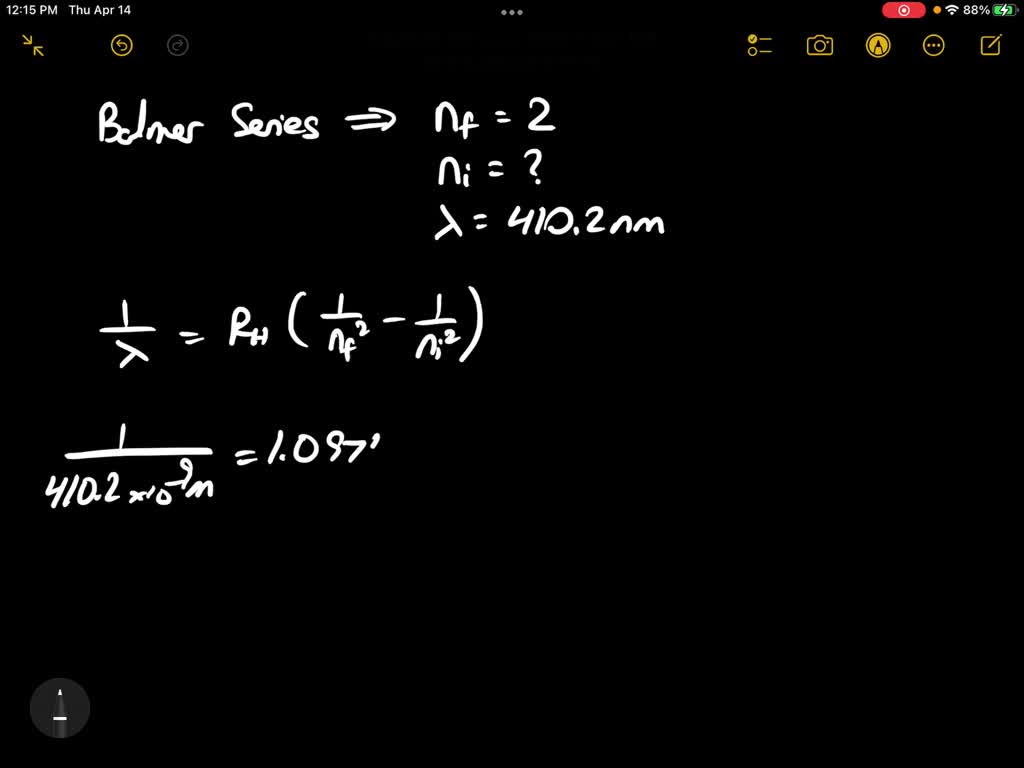 12:15 PM Thu Apr 14
88%
Balmer Series ⇒ n_f = 2
n_i = ?
λ = 410.2 nm
1/λ = R_H (1/n_f² - 1/n_i²)
1/(410.2 x10⁻⁹ m) = 1.097